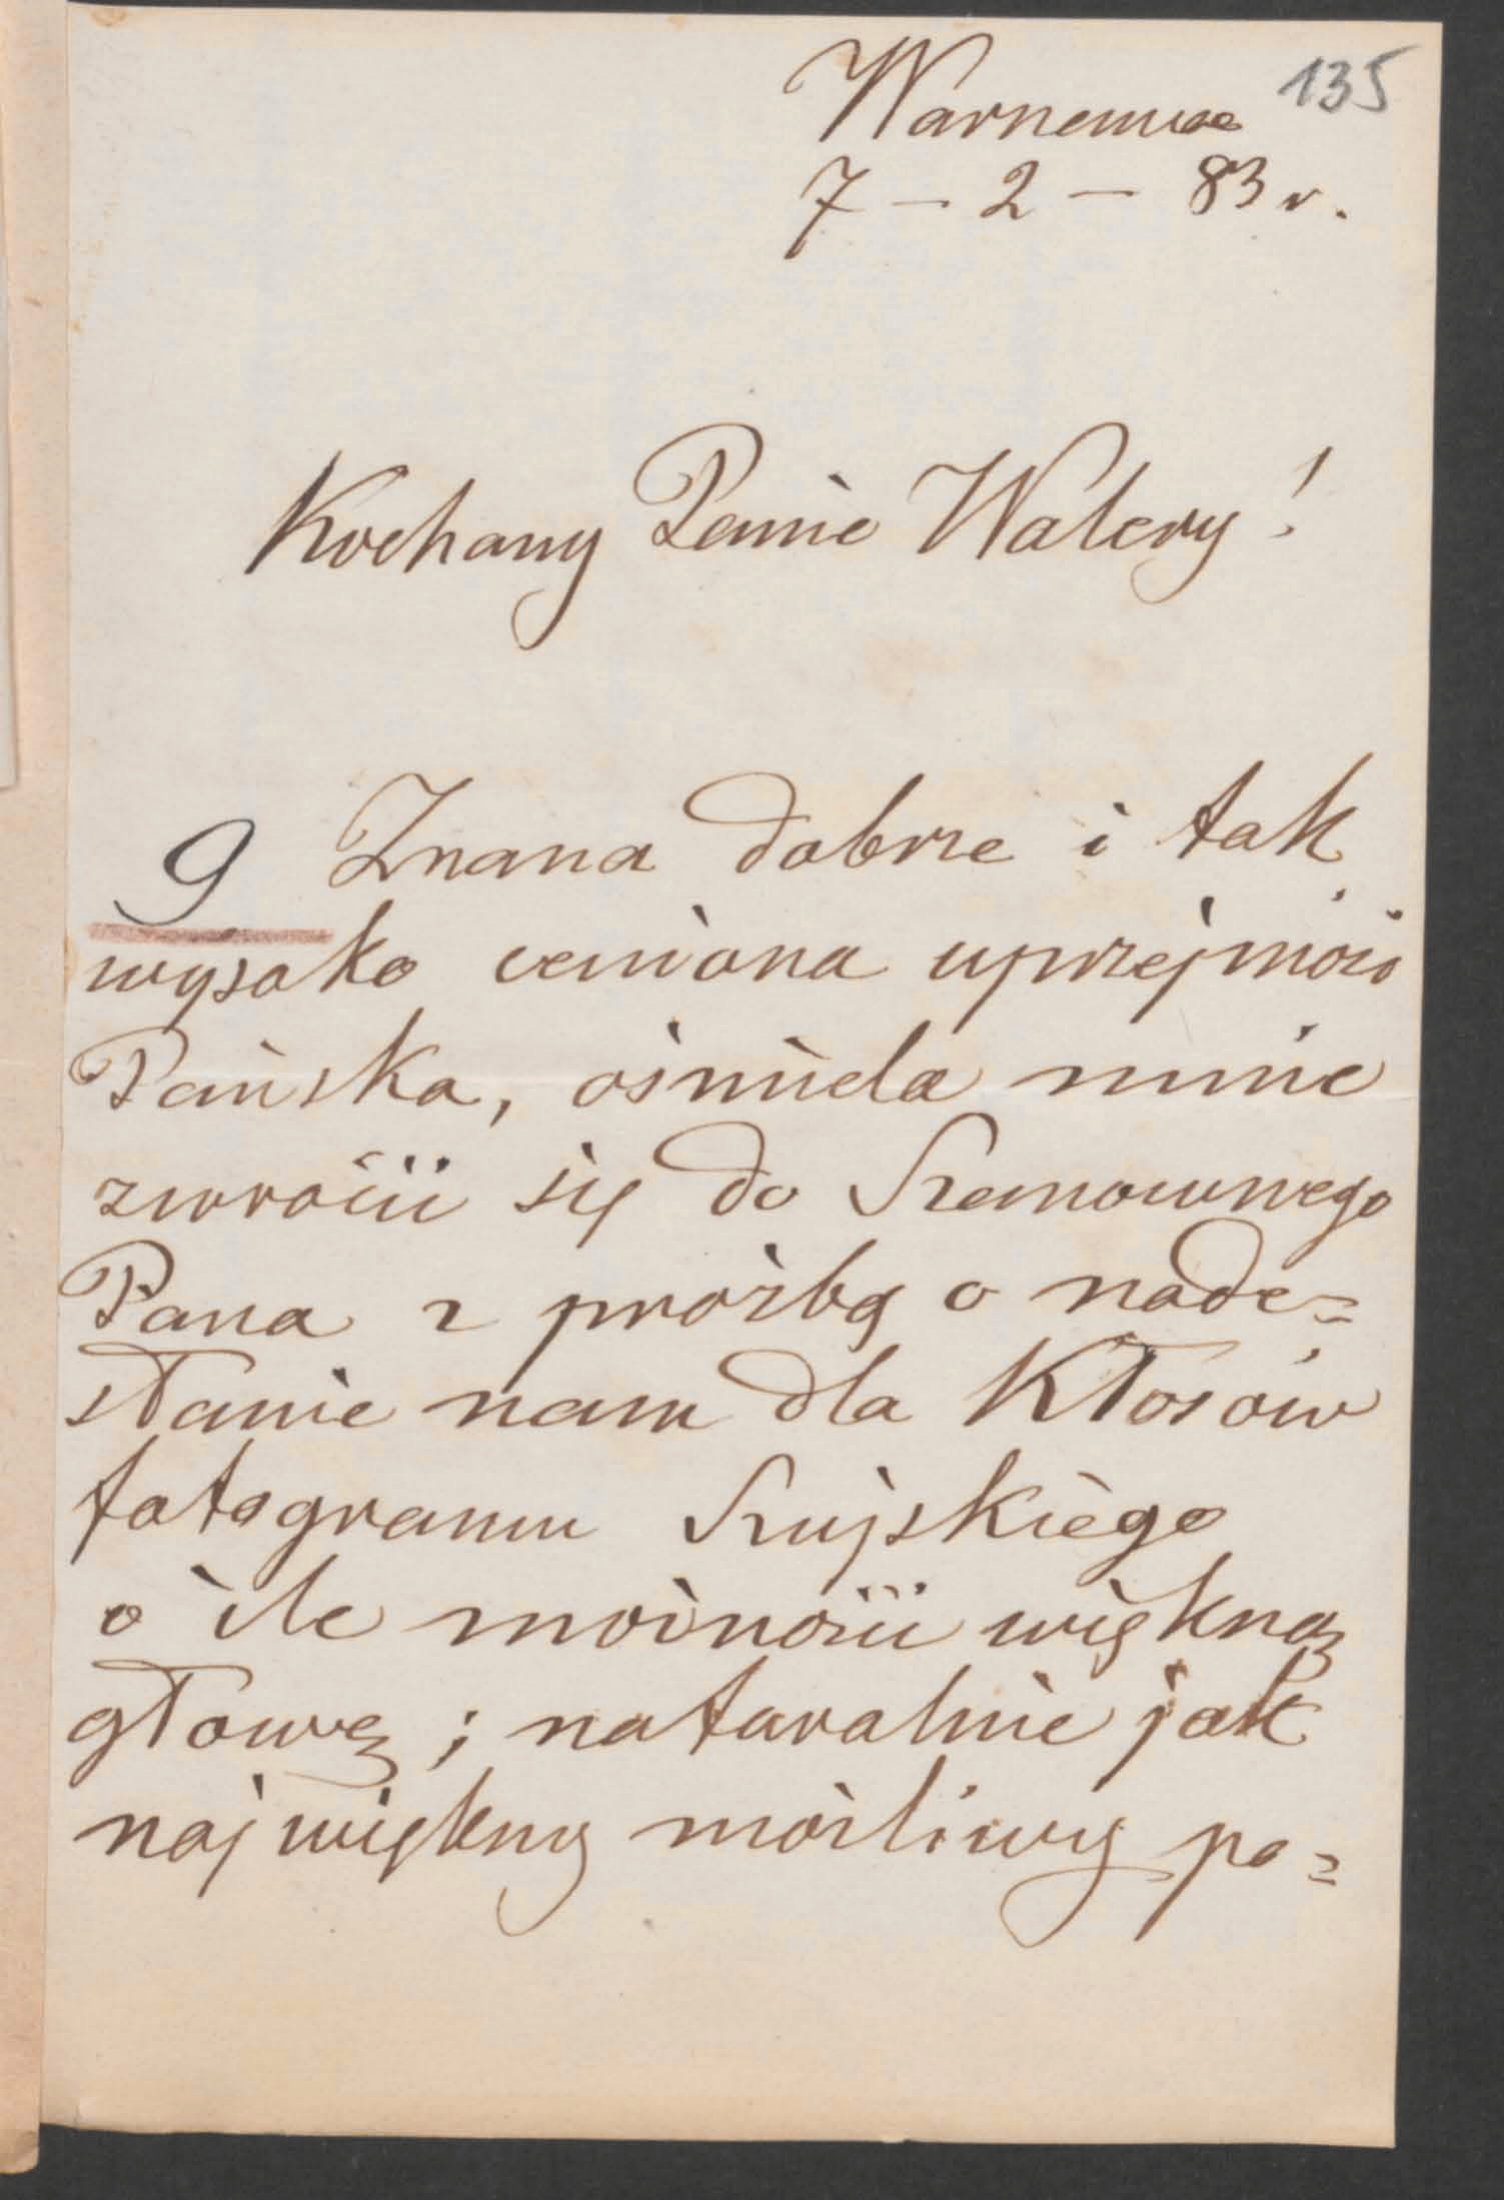 135
Warszawa
7 – 2 – 83 r.
Kochany Panie Walery!
9 Znana dobrze i tak
wysoko ceniona uprzejmość
Pańska, ośmiela mnie
zwrócić się do Szanownego
Pana z prośbą o nade=
słanie nam dla Kłosów
fotogramu Szujskiego
o ile możności większą
głowę; naturalnie jak
najwiękzy możliwy po=